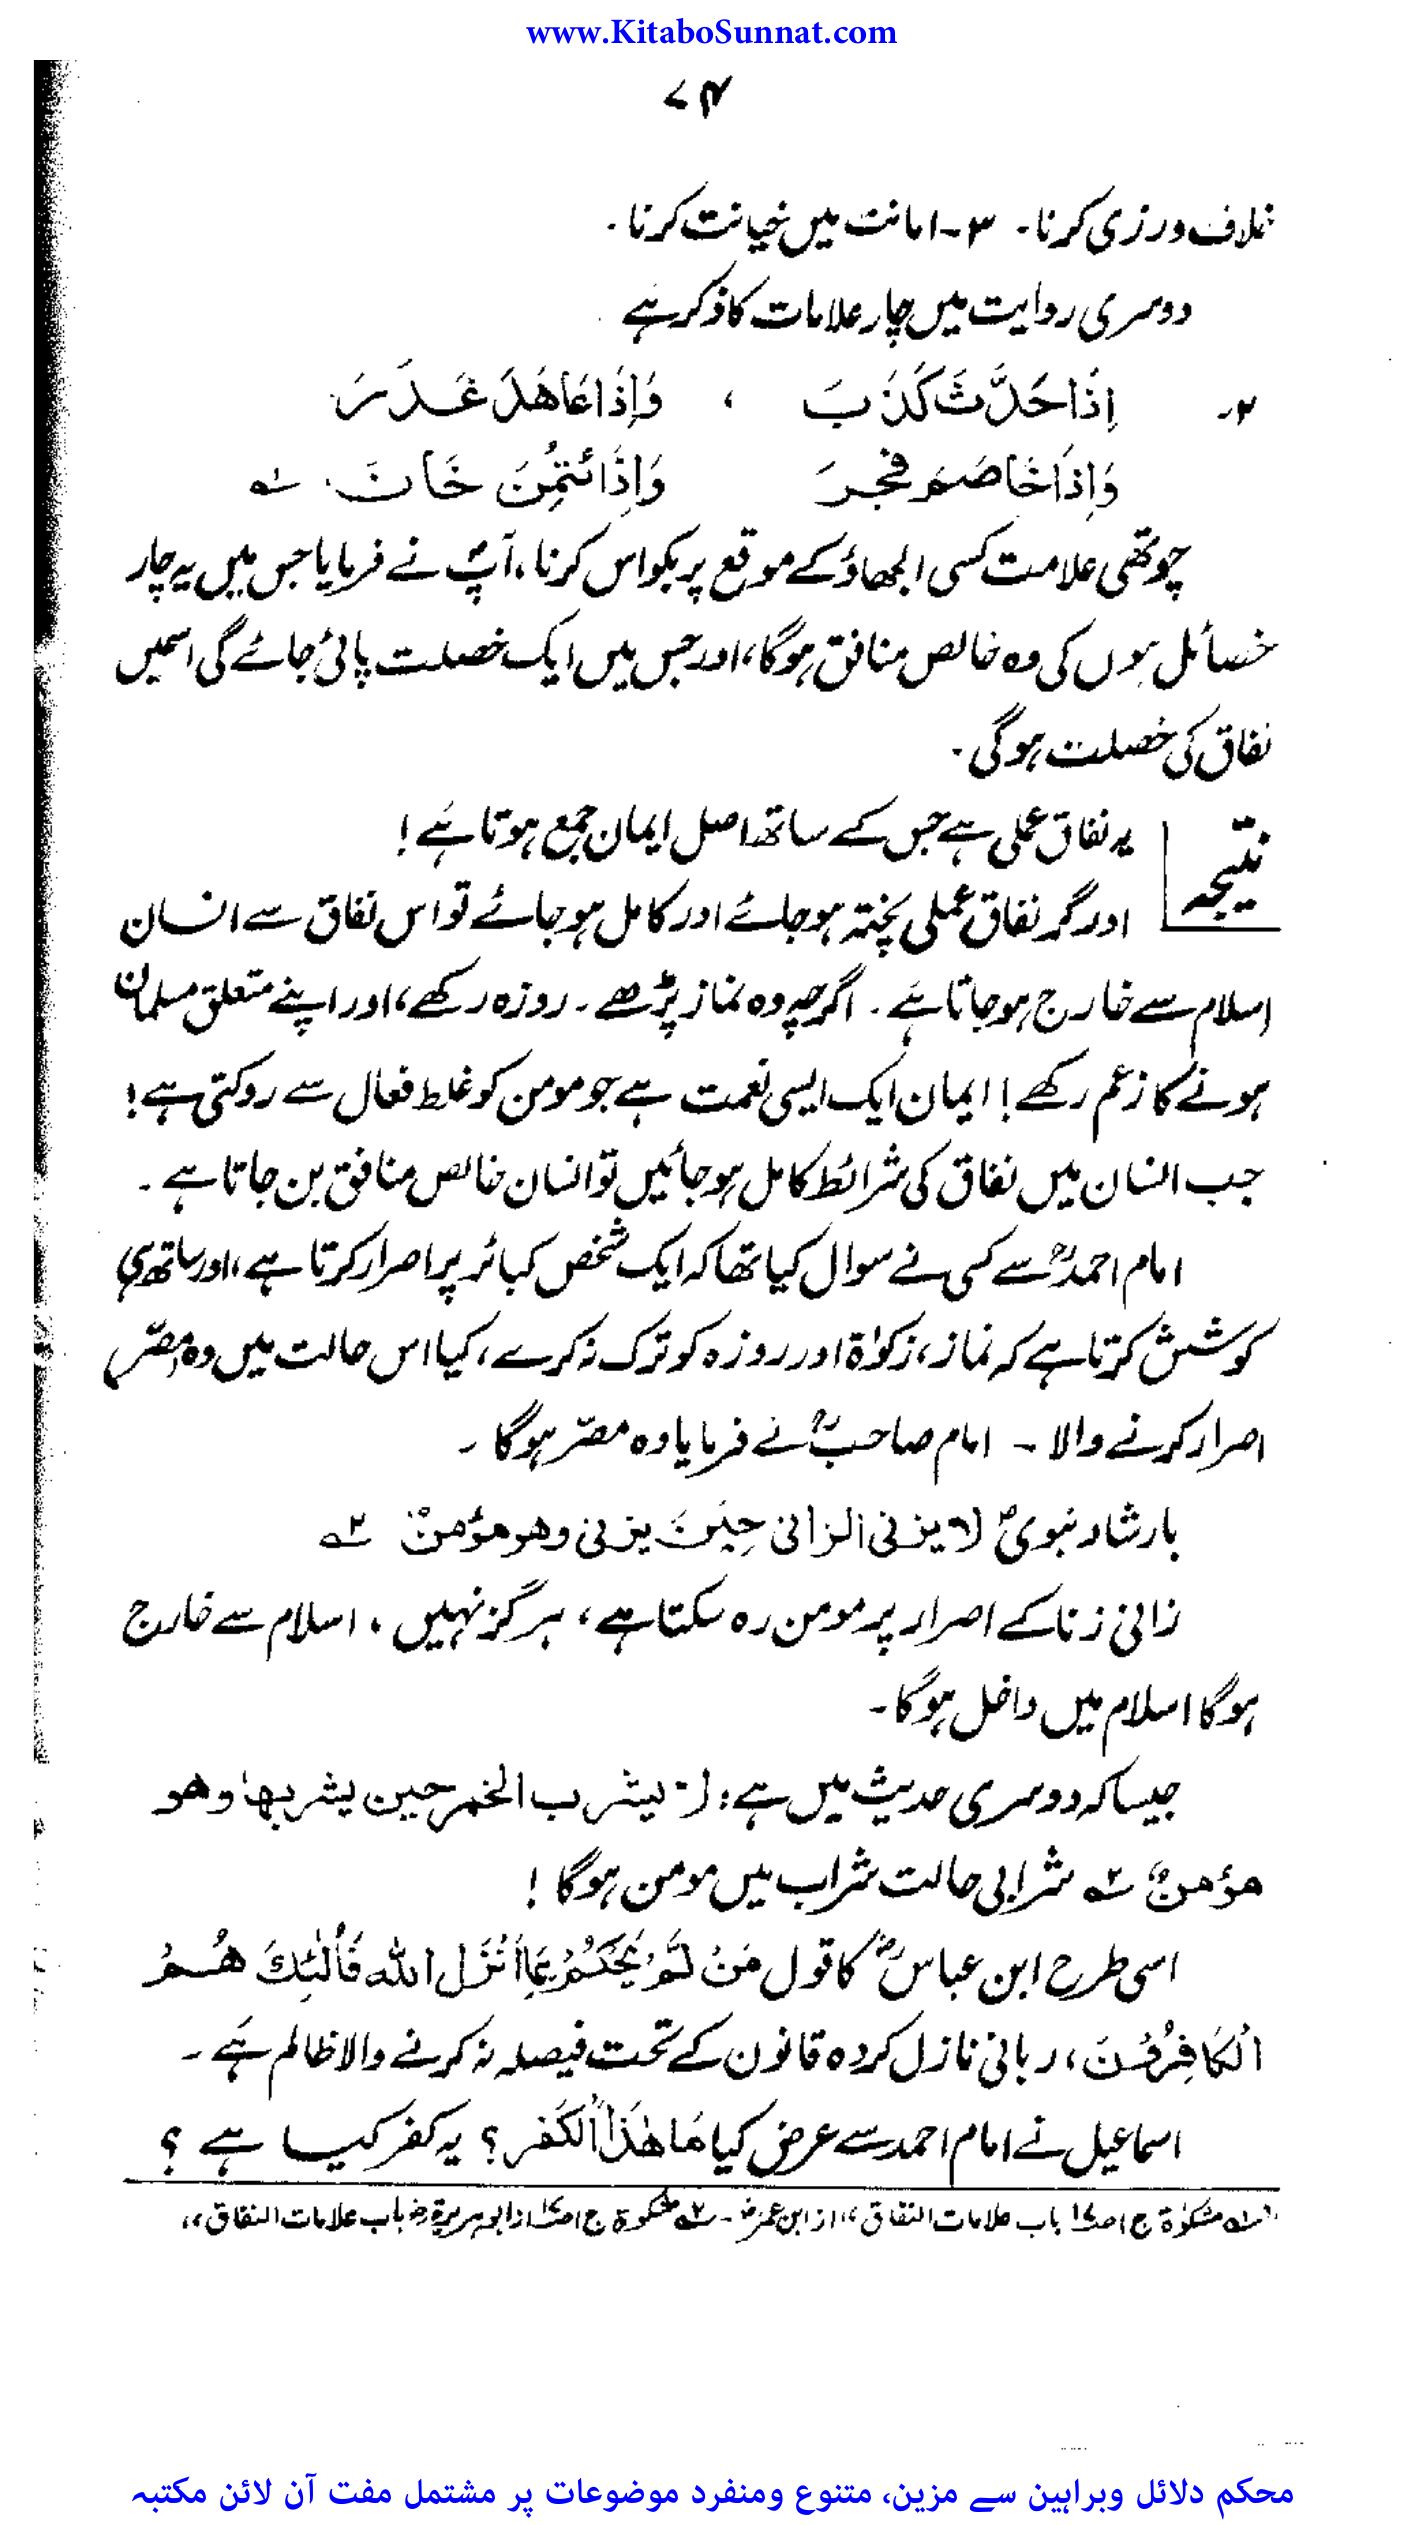 www.KitaboSunnat.com
۷۴
خلاف ورزی کرنا۔ ۳۔ امانت میں خیانت کرنا۔
دوسری روایت میں چار علامات کا ذکر ہے
۲۔ اِذَا حَدَّثَ كَذَبَ ، وَإِذَا عَاهَدَ غَدَرَ
وَإِذَا خَاصَمَ فجرَ وَإِذَا ئتُمِنَ خَانَ۔ ۱ے
چوتھی علامت کسی الجھاؤ کے موقع پر بکواس کرنا، آپؐ نے فرمایا جس میں یہ چار
خصائل ہوں کی وہ خالص منافق ہوگا، اور جس میں ایک خصلت پائی جائے گی اسمیں
نفاق کی خصلت ہوگی۔
نتیجہ یہ نفاق عملی ہے جس کے ساتھ اصل ایمان جمع ہوتا ہے!
اور گر نفاق عملی پختہ ہو جائے اور کامل ہو جائے تو اس نفاق سے انسان
اسلام سے خارج ہو جاتا ہے۔ اگرچہ وہ نماز پڑھے۔ روزہ رکھے، اور اپنے متعلق مسلمان
ہونے کا زعم رکھے! ایمان ایک ایسی نعمت ہے جو مومن کو غلط فعال سے روکتی ہے!
جب انسان میں نفاق کی شرائط کامل ہو جائیں تو انسان خالص منافق بن جاتا ہے۔
امام احمدؒ سے کسی نے سوال کیا تھا کہ ایک شخص کبائر پر اصرار کرتا ہے، اور ساتھ ہی
کوشش کرتا ہے کہ نماز، زکوٰۃ اور روزہ کو ترک نہ کرے، کیا اس حالت میں وہ مصّر
اصرار کرنے والا ۔ امام صاحبؒ نے فرمایا وہ مصّر ہوگا۔
بارشاد نبویؐ لا یزنی الزانی حِیْنَ یزنی وھو مؤمنٌ ۲ے
زانی زنا کے اصرار پر مومن رہ سکتا ہے، ہرگز نہیں۔ اسلام سے خارج
ہوگا اسلام میں داخل ہوگا۔
جیسا کہ دوسری حدیث میں ہے: لا یشرب الخمر حین یشربھا وھو
مؤمنٌ ۲ے شرابی حالت شراب میں مومن ہوگا!
اسی طرح ابن عباسؓ کا قول مَنْ لَّمْ يَحْكُمْ بِمَا اَنْزَلَ الله فَأُلٰئِكَ هُمُ
الْكَافِرُوْنَ، ربانی نازل کردہ قانون کے تحت فیصلہ نہ کرنے والا ظالم ہے۔
اسماعیل نے امام احمد سے عرض کیا مَا هٰذَا الْكَفر؟ یہ کفر کیسا ہے؟
۱ے مشکوٰۃ ج۱ ص۱۷ باب علامات النفاق،، از ابن عمرؓ۔ ۲ے مشکوۃ ج۱ ص۱۷ از ابو ہریرۃؓ باب علامات النفاق،،
محکم دلائل وبراہین سے مزین، متنوع ومنفرد موضوعات پر مشتمل مفت آن لائن مکتبہ